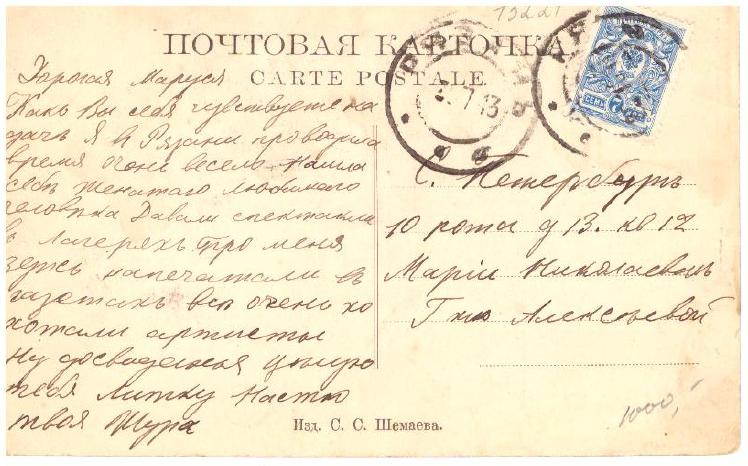 13221
ПОЧТОВАЯ КАРТОЧКА
CARTE POSTALE
РЯЗАНЬ
7 13
СЕМЬ 7
Дорогая Маруся
Какъ Вы себя чувствуете на
дачѣ Я в Рязани провожу
время очень весело Нашла
себѣ женатаго любимаго
человѣка Давали спектакли
в Лагеряхъ про меня
здесь напечатали въ
газетахъ все очень хо
хотали артисты
Ну досвиденья цѣлую
тебя Литку Настю
твоя Шура
С. Петербургъ
10 рота д 13. кв 12
Маріи Николаевнѣ
Г-жѣ Алексѣевой
Изд. С. С. Шемаева.
1000,-